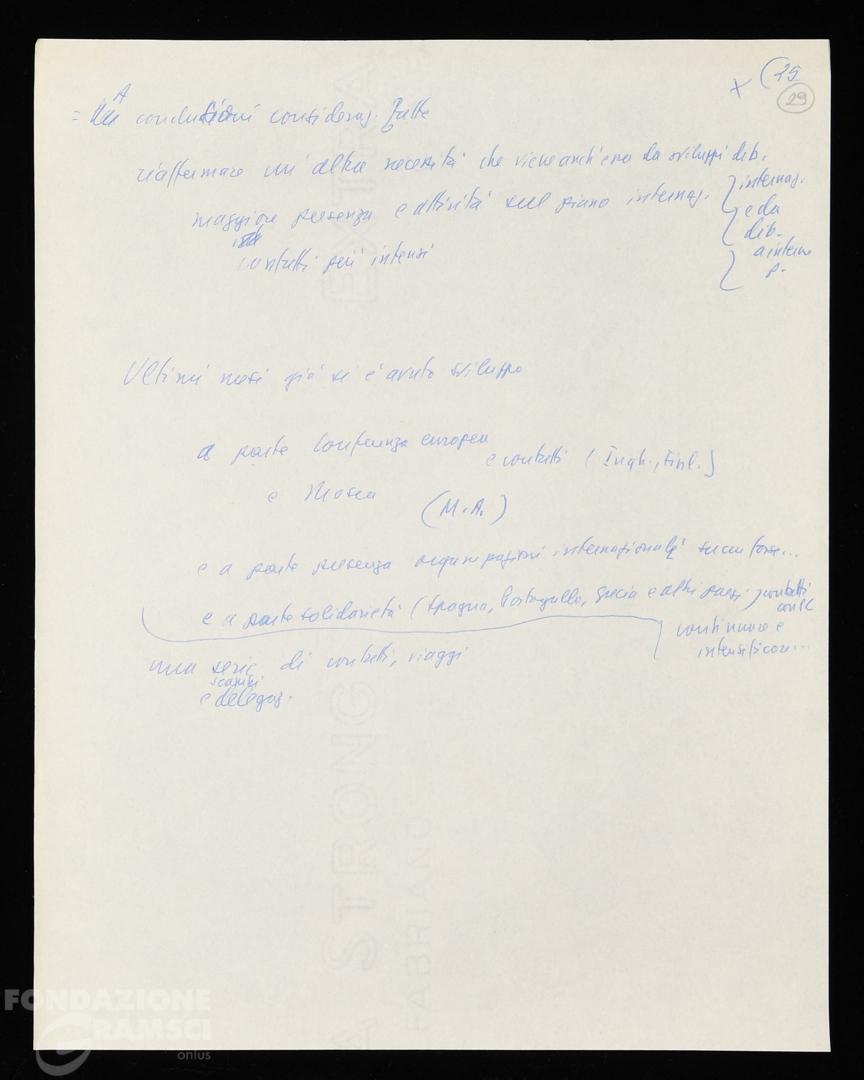 x (25
29
= A conclusioni consideraz. fatte
riaffermare un'altra necessità che viene anch'essa da sviluppi dib.
internaz.
maggiore presenza e attività sul piano internaz.
e da
dib.
a interno
p.
contatti più intensi
Ultimi mesi già si è avuto sviluppo
a parte Conferenza europea
e contatti (Ingh., Finl.)
e Mosca (M.A.)
e a parte presenza organizzazioni internazionali
e a parte solidarietà (Spagna, Portogallo, Grecia e altri paesi) contatti
con PC
continuare e
intensificare...
una serie di contatti, viaggi
scambi
e delegaz.
EXTRA STRONG
FABRIANO
FONDAZIONE
GRAMSCI
onlus